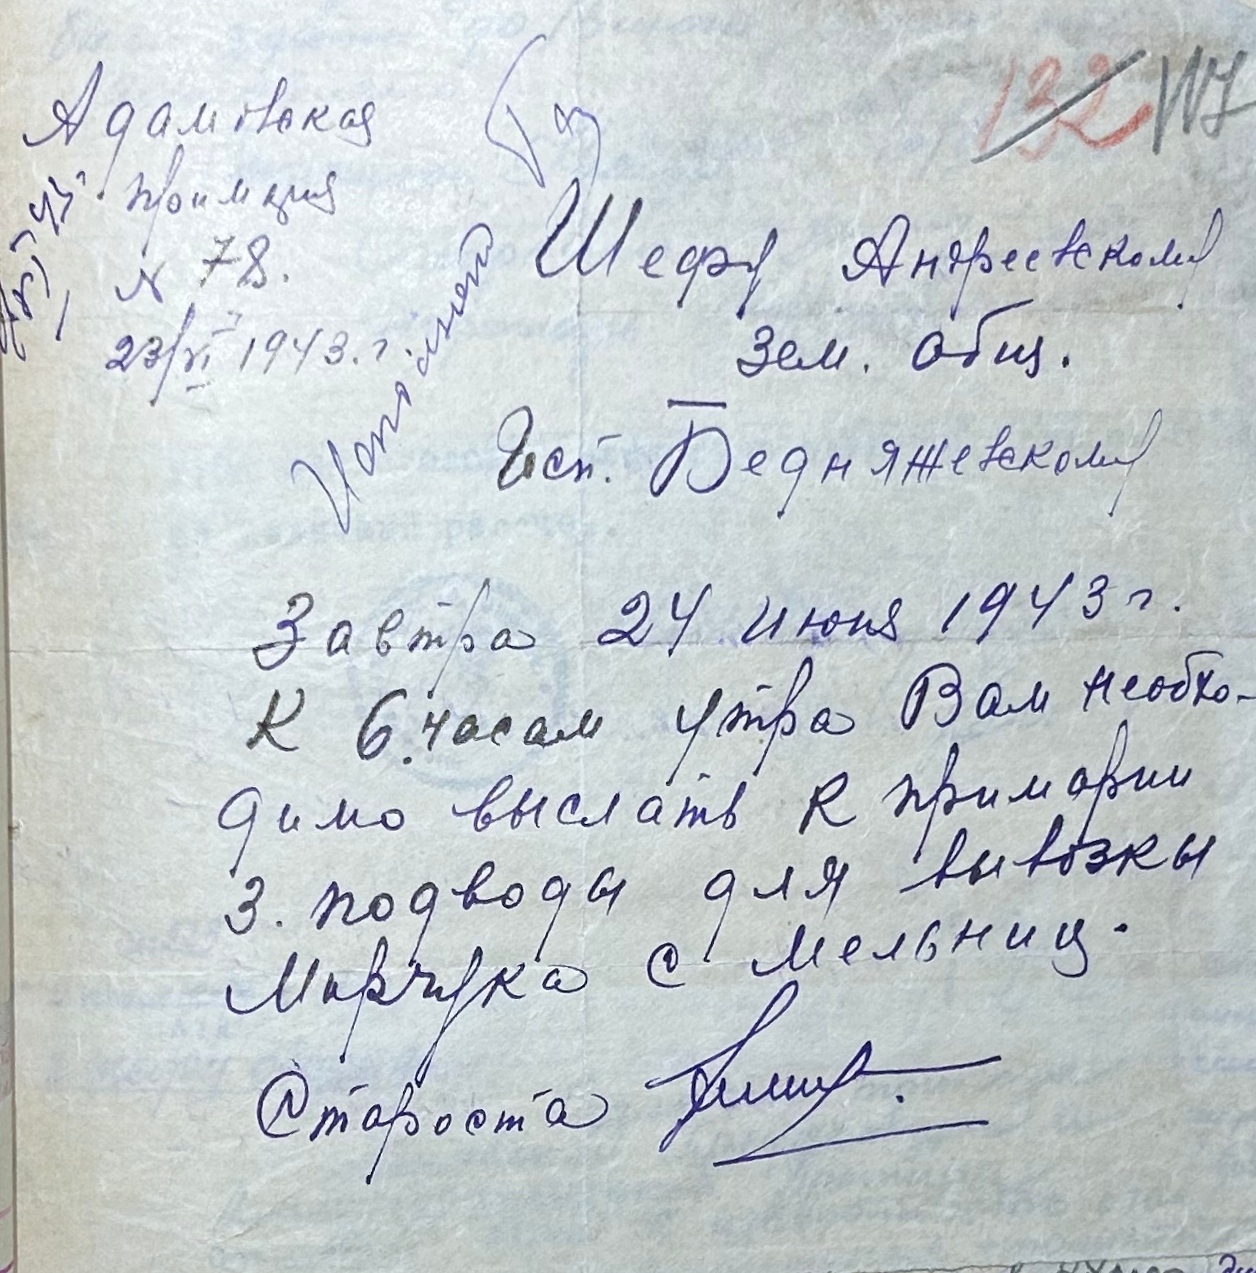 Адамовская
примария
N 78.
23/VI 1943. г.
Исполнено
132 117
Шефу Андреевскому
Зем. общ.
Исп. Бедняжевскому
Завтра 24 июня 1943 г.
К 6. часам утра Вам необхо-
димо выслать к примарии
3. подводы для вывозки
Марчука с мельниц.
Староста